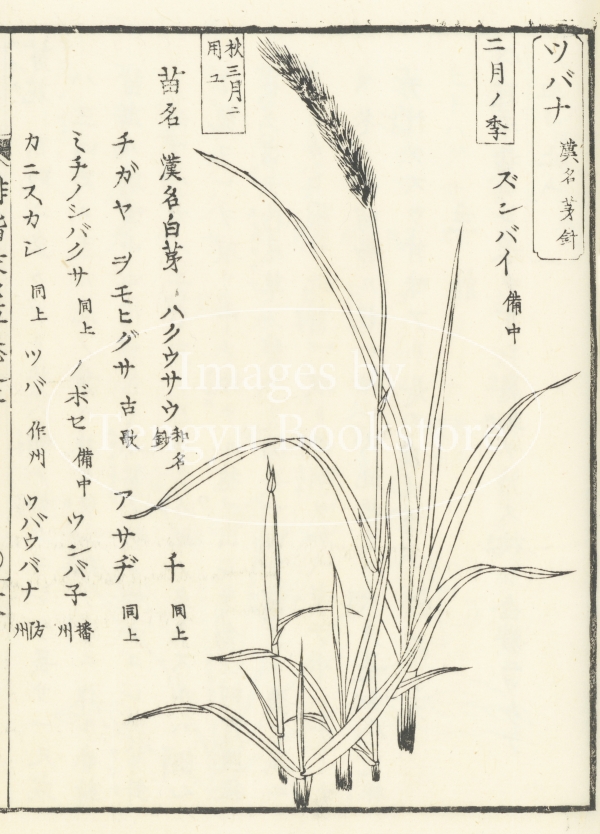 ツバナ 漢名 茅針
二月ノ季
ズンバイ 備中
秋三月ニ
用ユ
苗名 漢名白茅 ハクウサウ 和名 千 同上
チガヤ ヲモヒグサ 古歌 アサヂ 同上
ミチノシバクサ 同上 ノボセ 備中 ツンバ子 播州
カニスカシ 同上 ツバ 作州 ウバウバナ 防州
Images by
Tengyu Bookstore